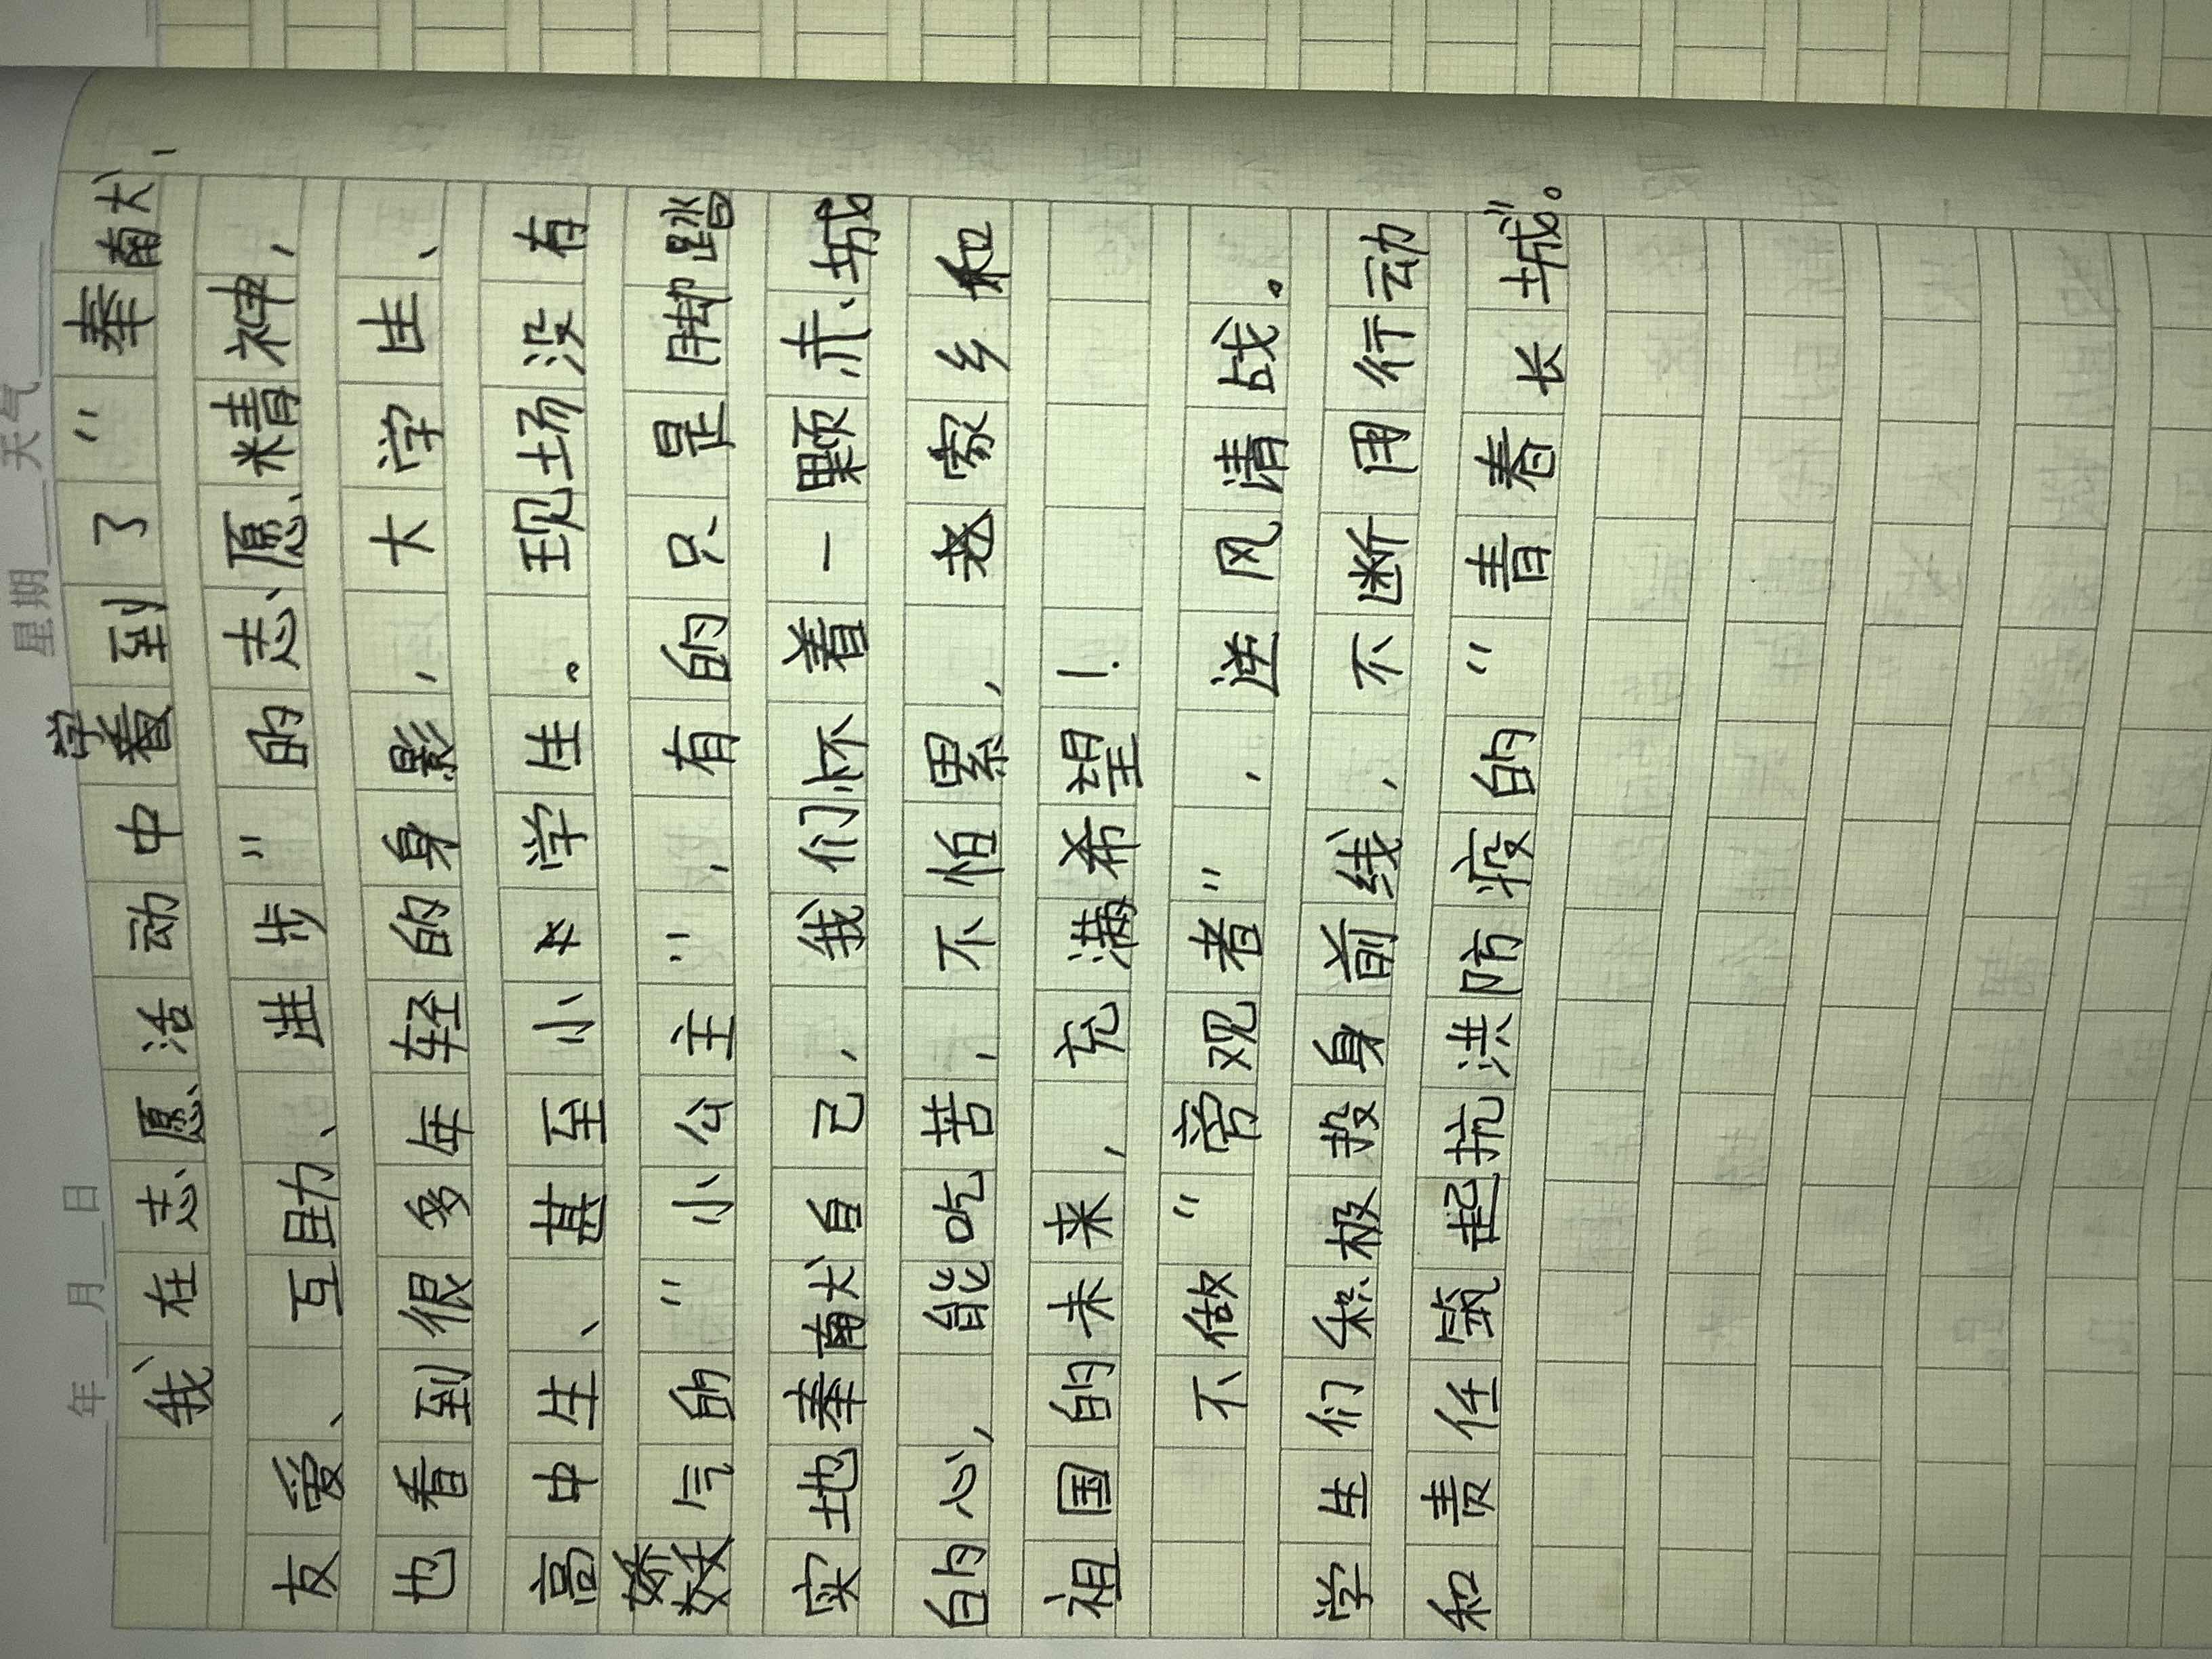 年 月 日 星期 天气
我在志愿活动中学到了“奉献、
友爱、互助、进步”的志愿精神，
也看到很多年轻的身影，大学生、
高中生、甚至小学生。现场没有
娇气的“小公主”，有的只是脚踏
实地奉献自己，我们怀着一颗赤城
的心，能吃苦，不怕累，家乡和
祖国的未来，充满希望！
不做“旁观者”，逆风清战。
学生们积极投身前线，不断用行动
和责任筑起抗洪防疫的“青春长城”。